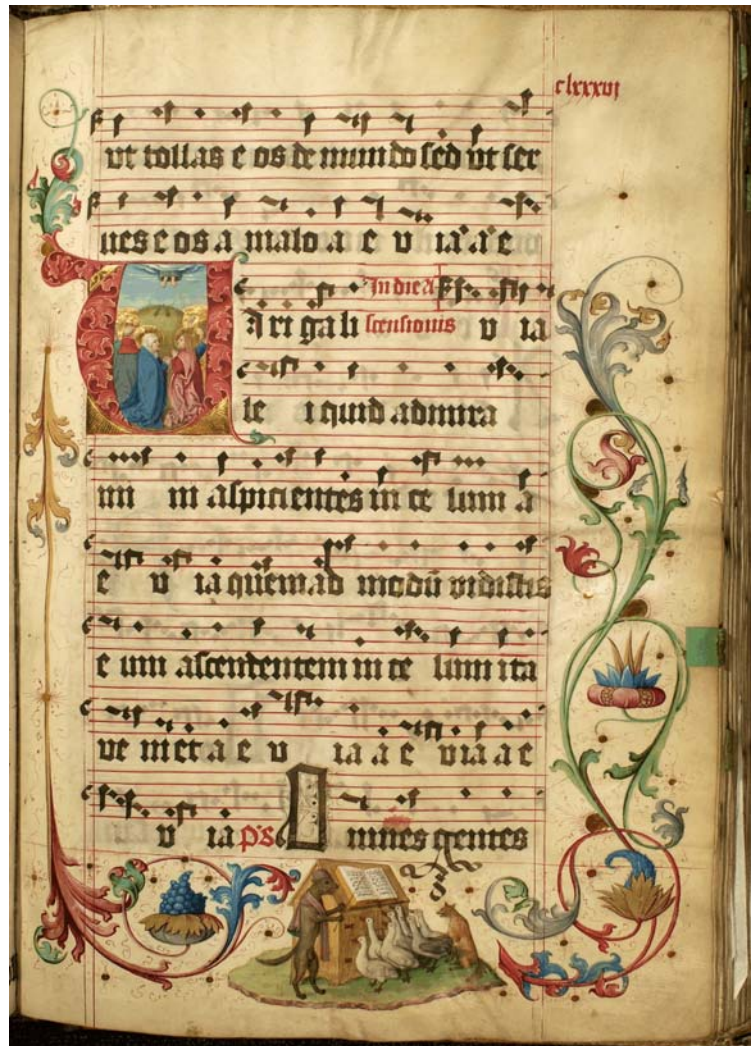 clxxxvj
vt tollas e os de mundo sed vt ser
ues e os a malo a e v ia a e
V In die A
iri gali scensionis v ia
le i quid admira
mi ni aspicientes in ce lum a
e v ia quemad modū vidistis
e um ascendentem in ce lum ita
ve niet a e v ia a e v ia a e
v ia ps Omnes gentes